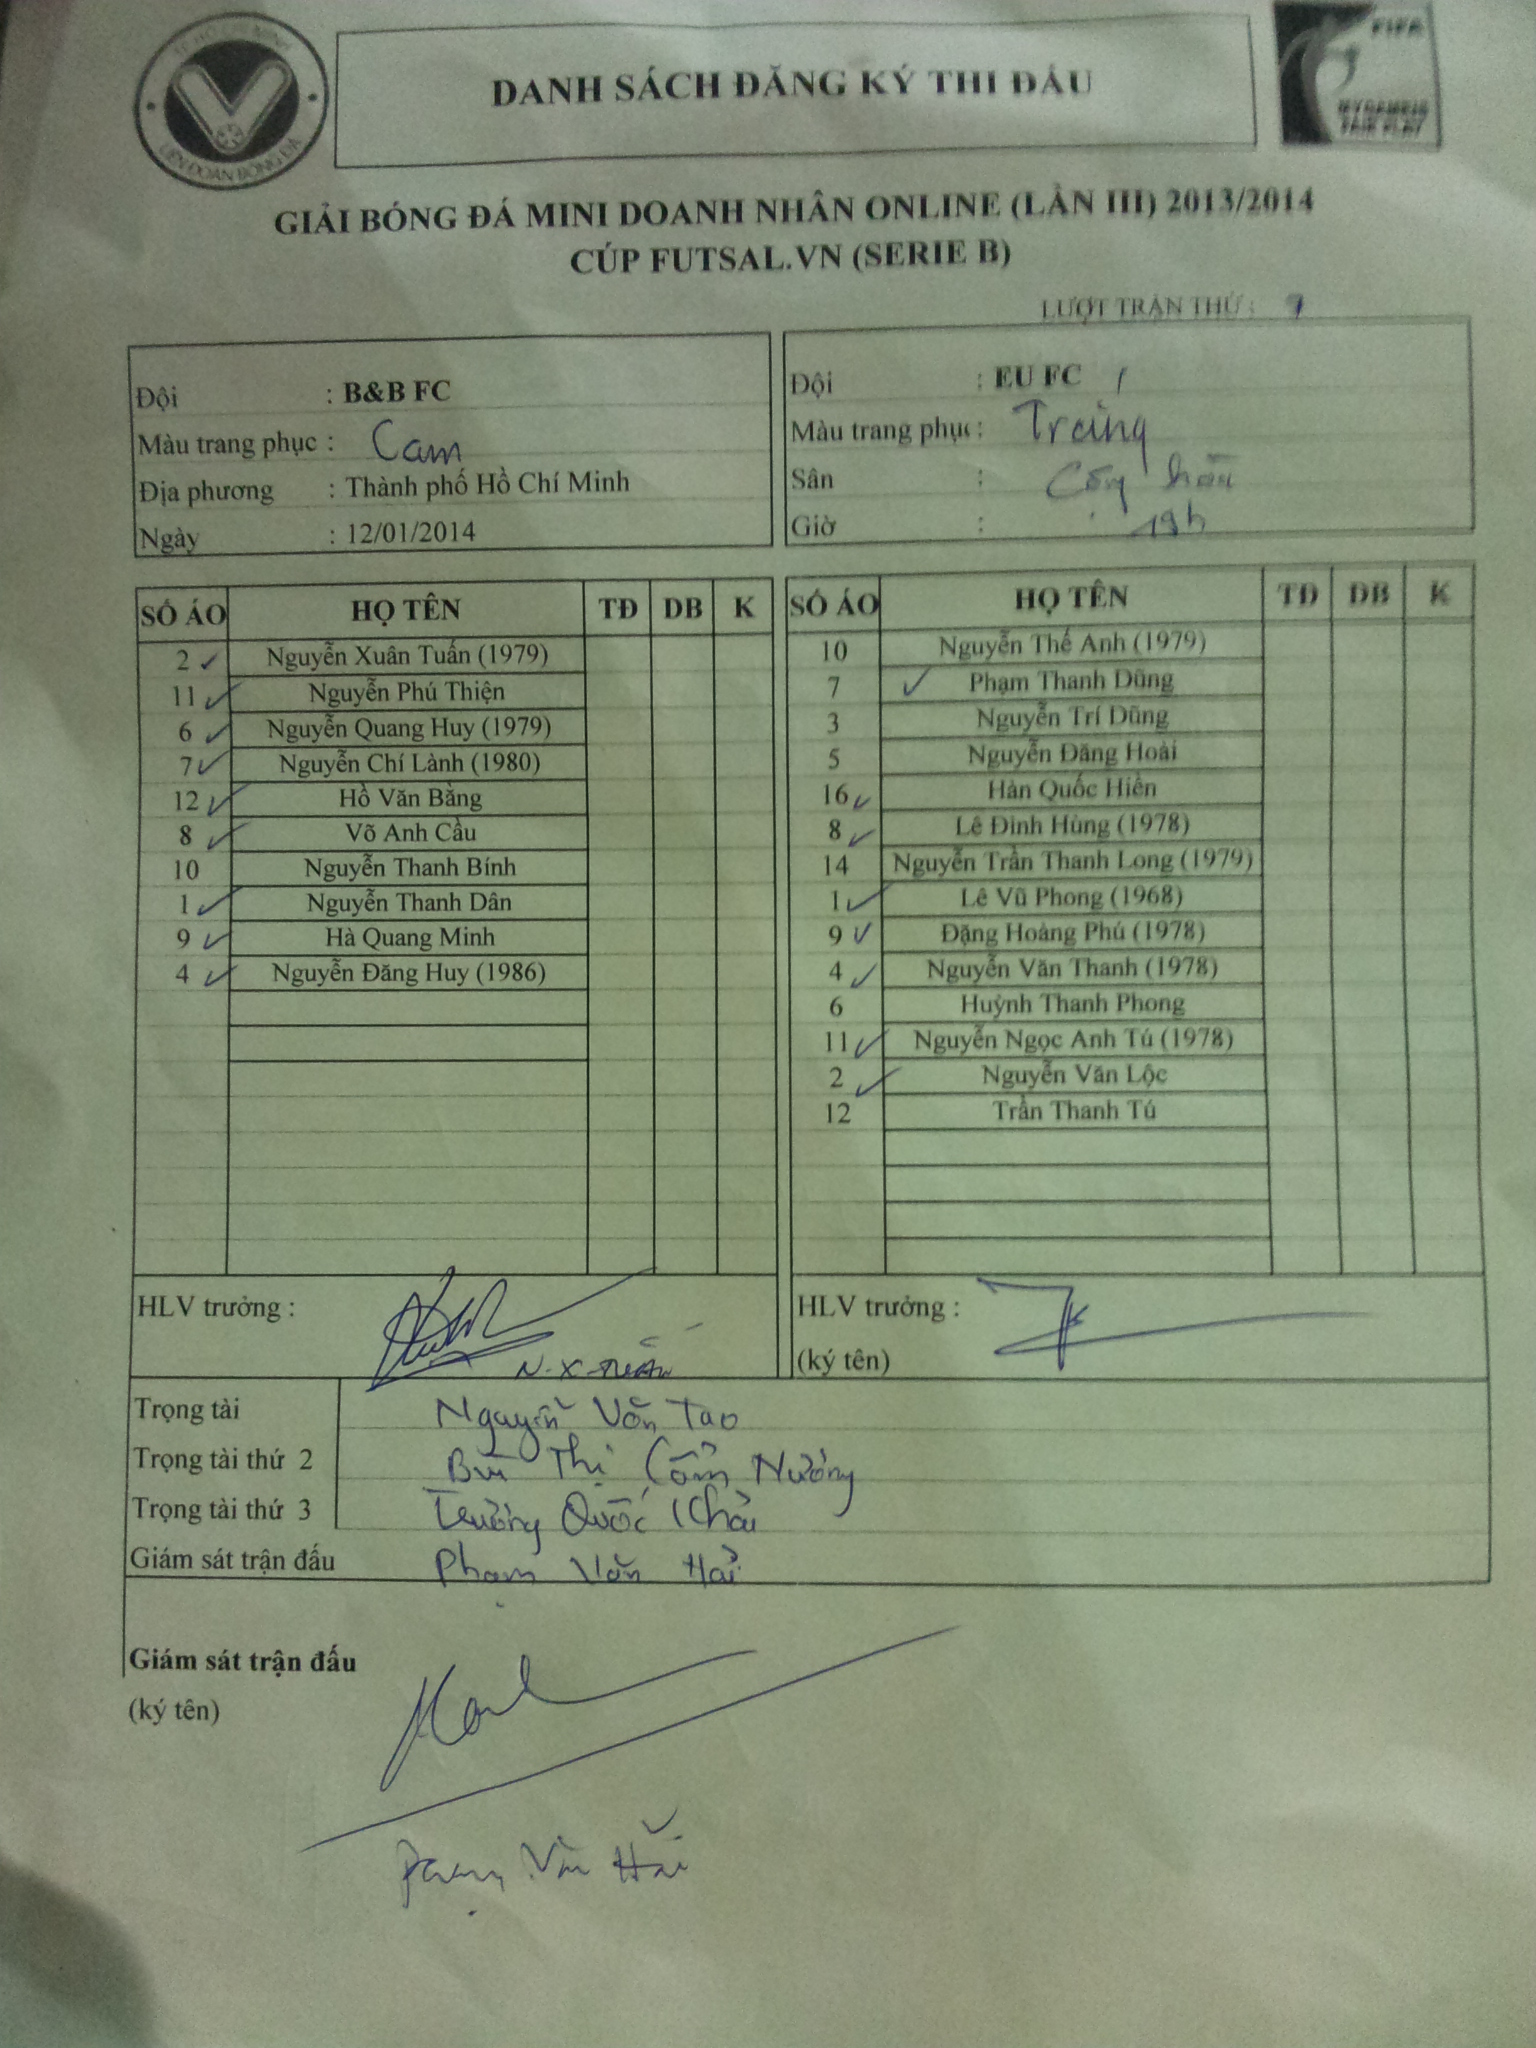 TP HỒ CHÍ MINH
LIÊN ĐOÀN BÓNG ĐÁ
DANH SÁCH ĐĂNG KÝ THI ĐẤU
FIFA
MY GAME IS
FAIR PLAY
GIẢI BÓNG ĐÁ MINI DOANH NHÂN ONLINE (LẦN III) 2013/2014
CÚP FUTSAL.VN (SERIE B)
LƯỢT TRẬN THỨ : 7
Đội : B&B FC
Màu trang phục : Cam
Địa phương : Thành phố Hồ Chí Minh
Ngày : 12/01/2014
Đội : EU FC
Màu trang phục : Trắng
Sân : Cộng hòa
Giờ : 19h
SỐ ÁO HỌ TÊN TĐ DB K
2 Nguyễn Xuân Tuấn (1979)
11 Nguyễn Phú Thiện
6 Nguyễn Quang Huy (1979)
7 Nguyễn Chí Lành (1980)
12 Hồ Văn Bằng
8 Võ Anh Cầu
10 Nguyễn Thanh Bính
1 Nguyễn Thanh Dân
9 Hà Quang Minh
4 Nguyễn Đăng Huy (1986)
SỐ ÁO HỌ TÊN TĐ DB K
10 Nguyễn Thế Anh (1979)
7 Phạm Thanh Dũng
3 Nguyễn Trí Dũng
5 Nguyễn Đăng Hoài
16 Hàn Quốc Hiền
8 Lê Đình Hùng (1978)
14 Nguyễn Trần Thanh Long (1979)
1 Lê Vũ Phong (1968)
9 Đặng Hoàng Phú (1978)
4 Nguyễn Văn Thanh (1978)
6 Huỳnh Thanh Phong
11 Nguyễn Ngọc Anh Tú (1978)
2 Nguyễn Văn Lộc
12 Trần Thanh Tú
HLV trưởng :
N.X.Tuấn
HLV trưởng :
(ký tên)
Trọng tài Nguyễn Văn Tao
Trọng tài thứ 2 Bùi Thị Cẩm Nường
Trọng tài thứ 3 Trương Quốc Khải
Giám sát trận đấu Phạm Văn Hải
Giám sát trận đấu
(ký tên)
Phạm Văn Hải